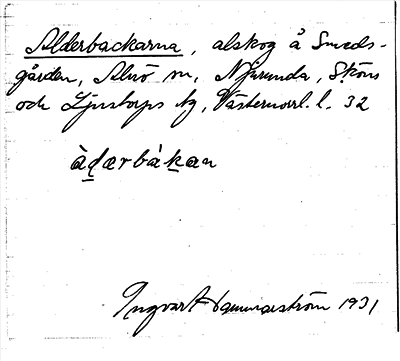 Alderbackarna, alskog å Smeds-
gården, Alnö sn, Njurunda, Sköns
och Ljustorps tg, Västernorrl. l. 32
àḏærbàḵan
Ingvar Hammarström 1931